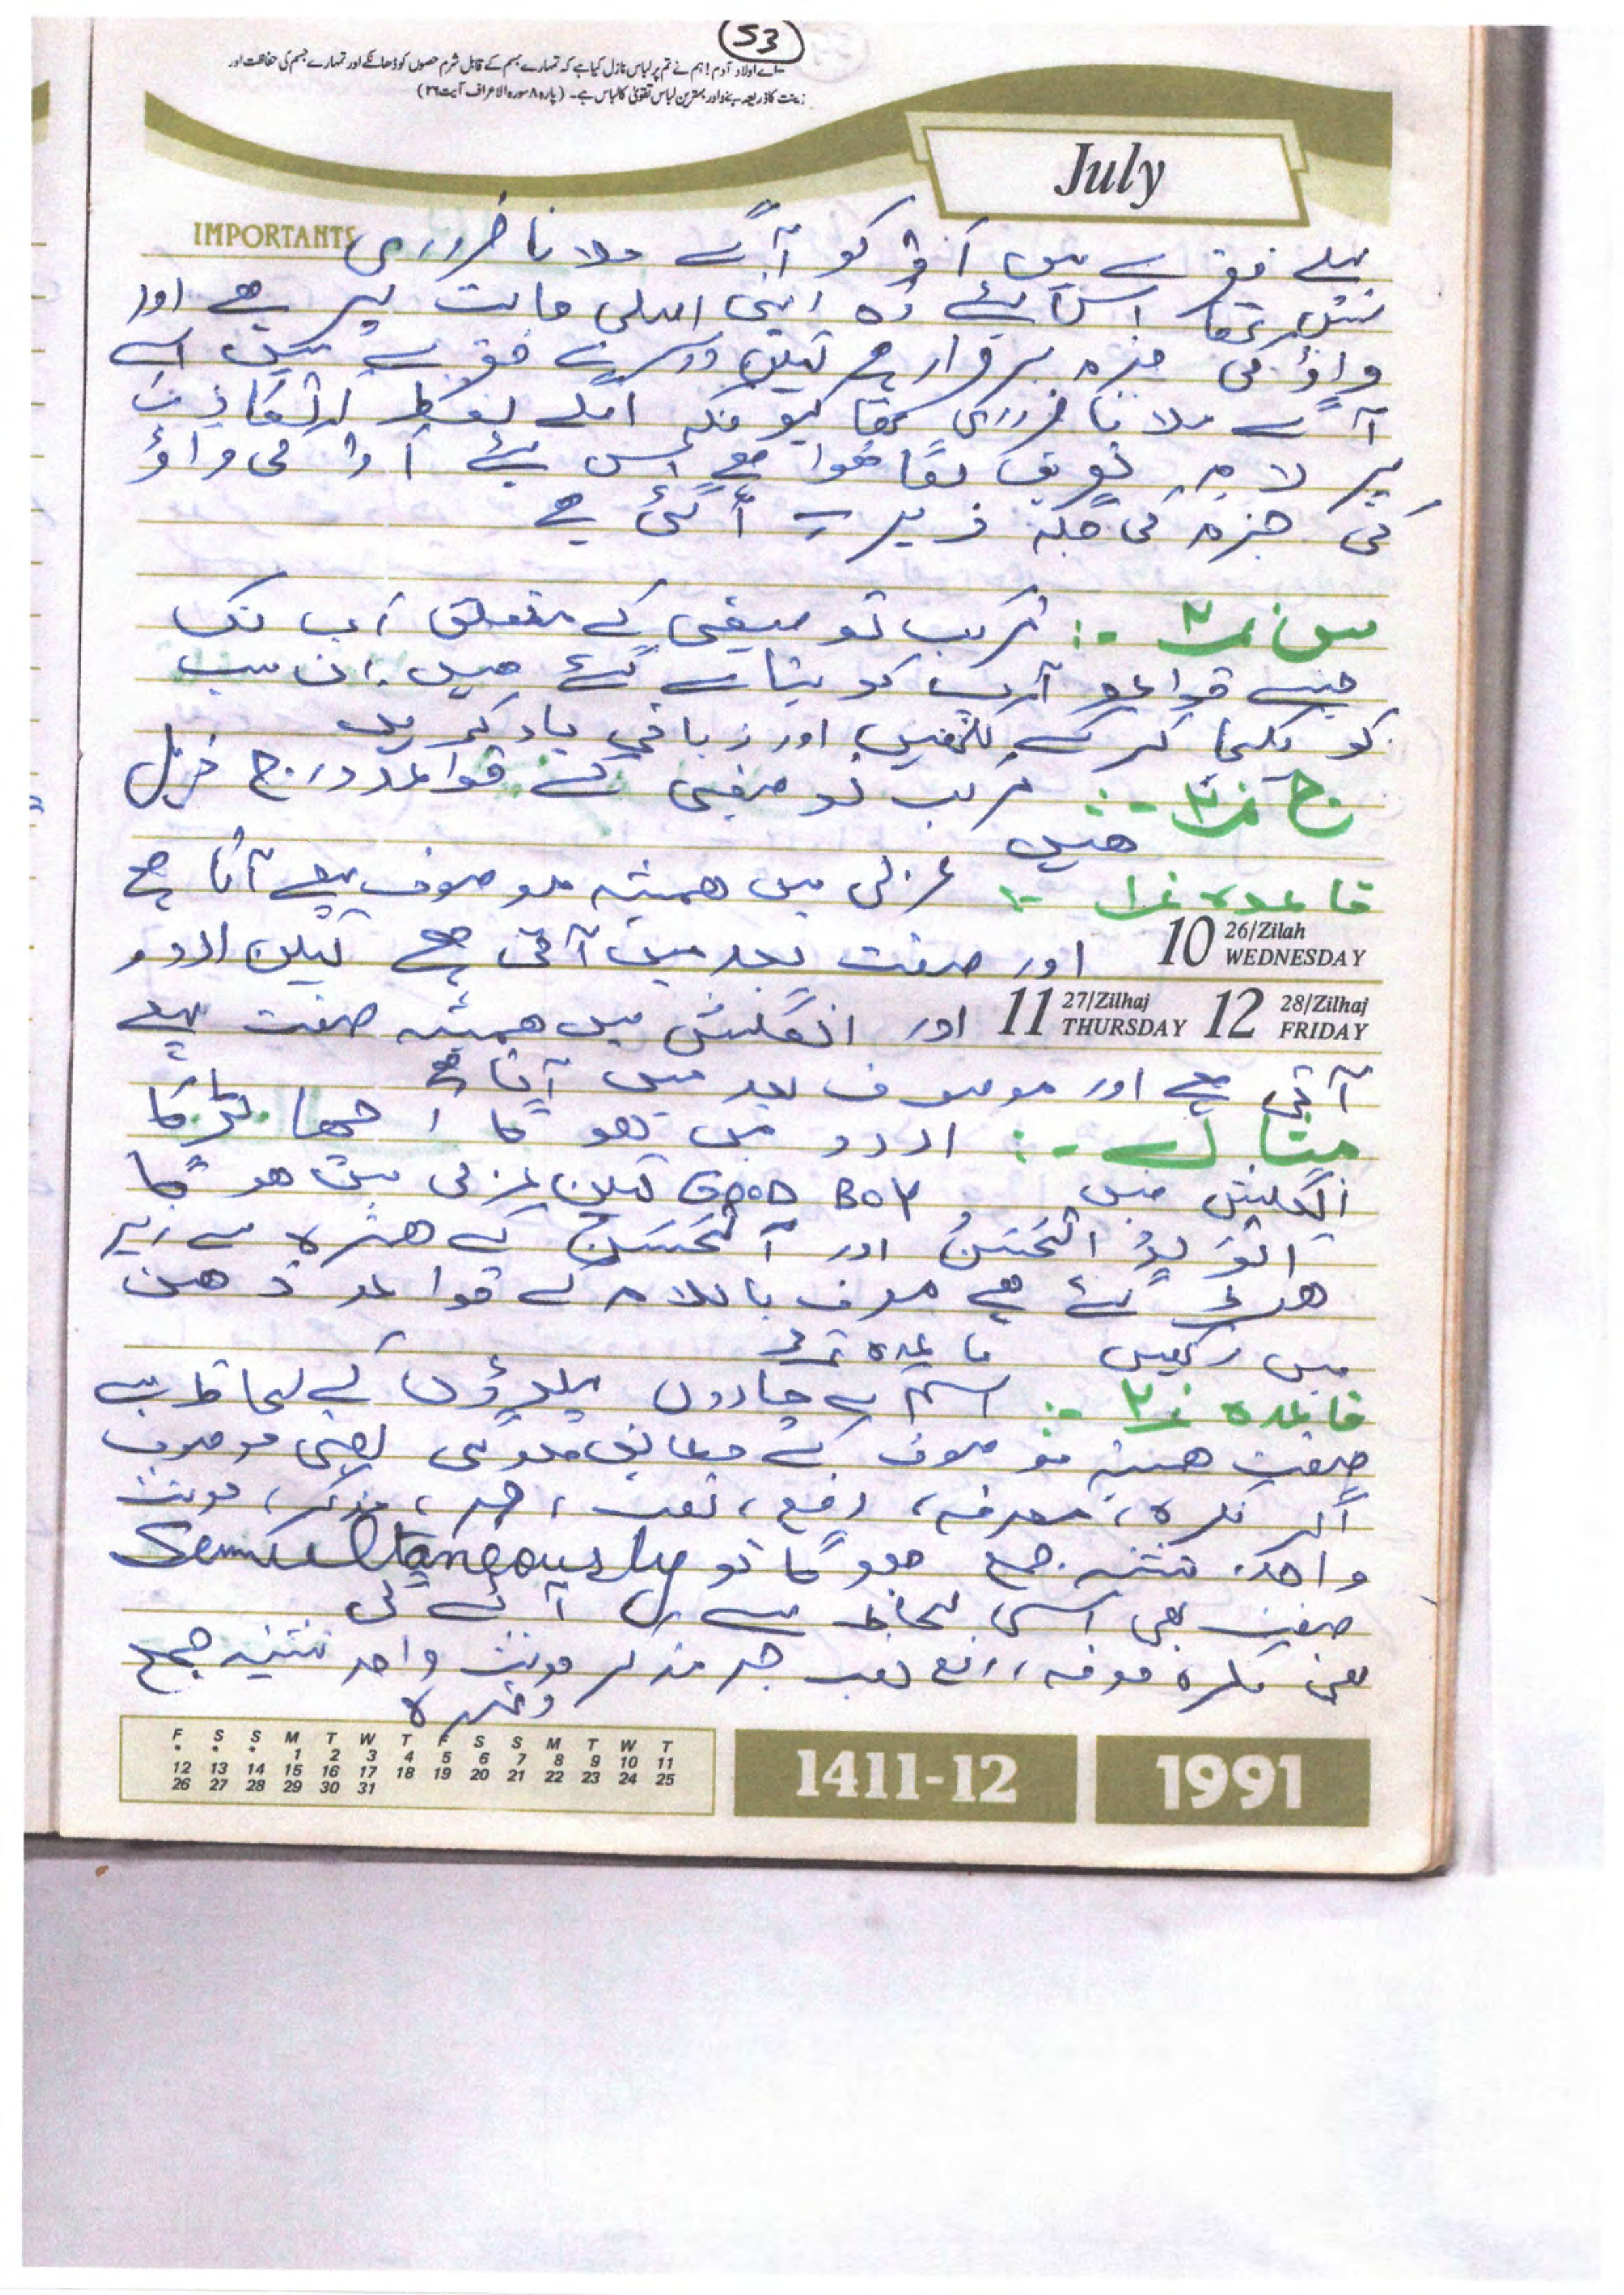 53
اے اولاد آدم! ہم نے تم پر لباس نازل کیا ہے کہ تمہارے جسم کے قابل شرم حصوں کو ڈھانکے اور تمہارے جسم کی حفاظت اور
زینت کا ذریعہ بنے اور بہترین لباس تقویٰ کا لباس ہے۔ (پارہ ۸ سورہ الاعراف آیت ۲۶)
July
IMPORTANTS
پہلے فقرے میں اَوْ کو آگے ملانا ضروری
نہیں تھا اس لئے وہ اپنی اصلی حالت پر ہے اور
واؤ کی جزم برقرار ہے لیکن دوسرے فقرے میں اسے
آگے ملانا ضروری تھا کیونکہ اگلے لفظ
پر لام تعریف لگا ہوا ہے اس لئے اَو کی واؤ
کی جزم کی جگہ زیر آ گئی ہے
س نمبر ۲ :- ترکیب توصیفی کے متعلق اب تک
جتنے قواعد آپ کو بتائے گئے ہیں۔ ان سب
کو یکجا کر کے لکھیں اور زبانی یاد کریں
ج نمبر ۲ :- مرکب توصیفی کے قواعد درج ذیل
ہیں
قاعدہ نمبر ۱ :- عربی میں ہمیشہ موصوف پہلے آتا ہے
10 26/Zilah WEDNESDAY اور صفت بعد میں آتی ہے لیکن اردو
11 27/Zilhaj THURSDAY 12 28/Zilhaj FRIDAY اور انگلش میں ہمیشہ صفت پہلے
آتی ہے اور موصوف بعد میں آتا ہے
مثال :- اردو میں ہو گا اچھا لڑکا
انگلیش میں GOOD BOY لیکن عربی میں ہو گا
الْوَلَدُ الْحَسَنُ اور اَلْحَسَنُ کے ھمزہ سے زبر
گئے ہے معرف باللام کے قواعد ذھن
میں رکھیں قاعدہ نمبر
قاعدہ نمبر ۲ :- اسم کے چاروں پہلوؤں کے لحاظ سے
صفت ھمیشہ موصوف کے مطابق ہو گی یعنی موصوف
اگر نکرہ، معرفہ، رفع، نصب، جر، مذکر، مونث
واحد، تثنیہ جمع ہو گا تو Semultaneously
صفت بھی اسی لحاظ سے آئے گی
یعنی نکرہ معرفہ، رفع نصب جر مذکر مونث واحد تثنیہ جمع
وغیرہ
F S S M T W T F S S M T W T
• • • 1 2 3 4 5 6 7 8 9 10 11
12 13 14 15 16 17 18 19 20 21 22 23 24 25
26 27 28 29 30 31
1411-12
1991